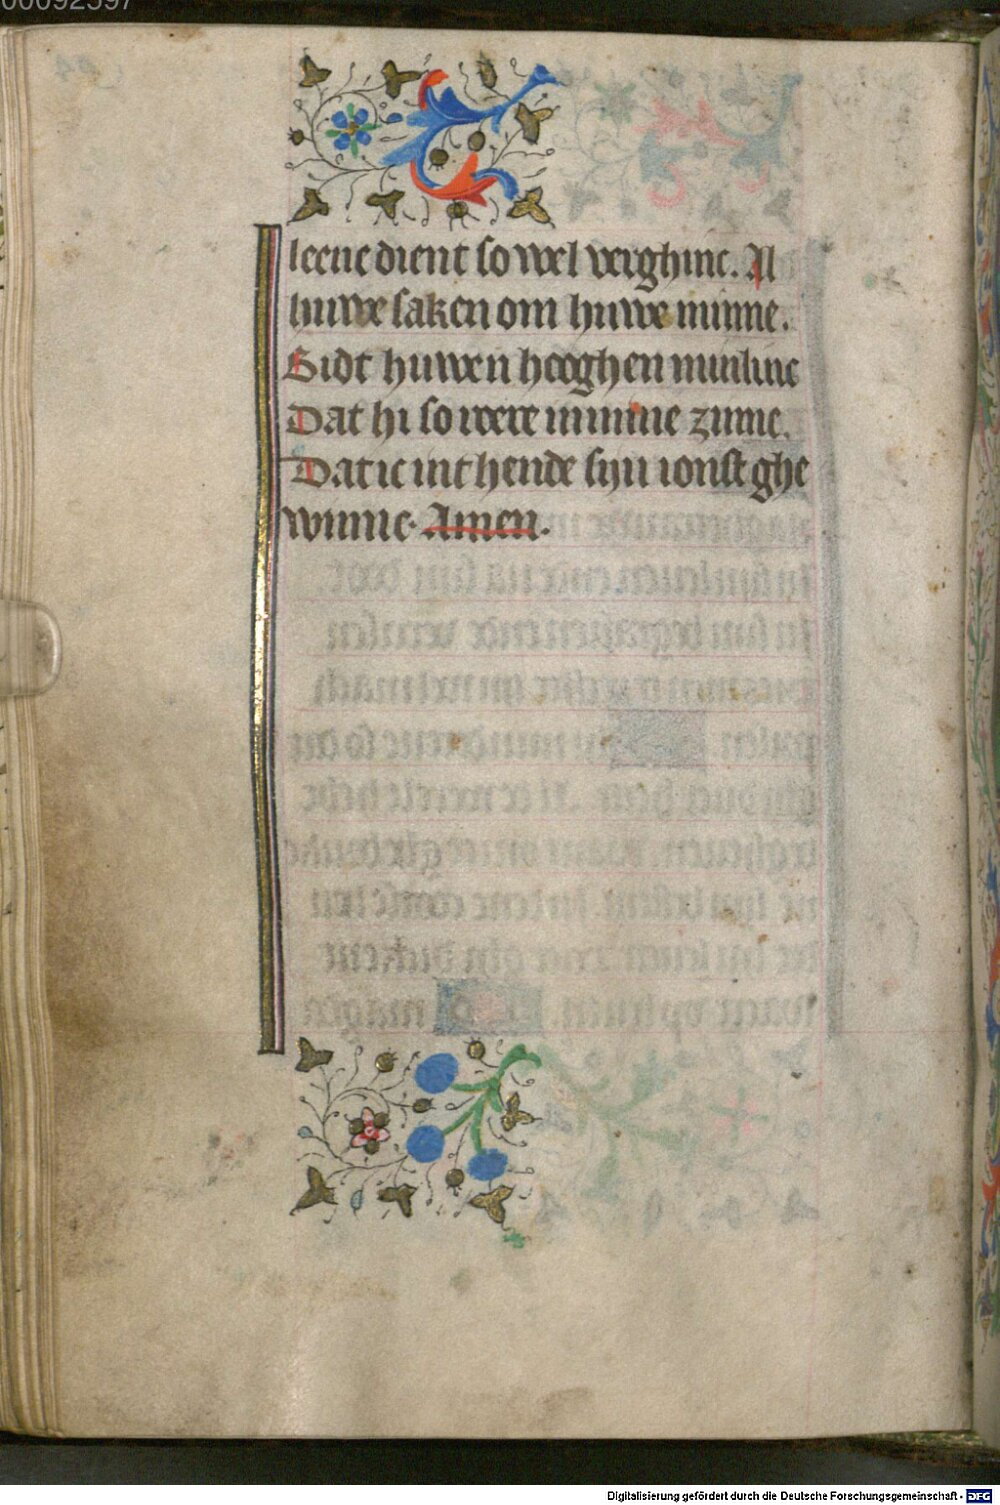 leene dient so wel verghinc. Al
huwe saken om huwe minne.
Bidt huwen hooghen minlinc
Dat hi so were minne zinne.
Dat ic int hende sijn ionst ghe
winne. Amen.
Digitalisierung gefördert durch die Deutsche Forschungsgemeinschaft - DFG